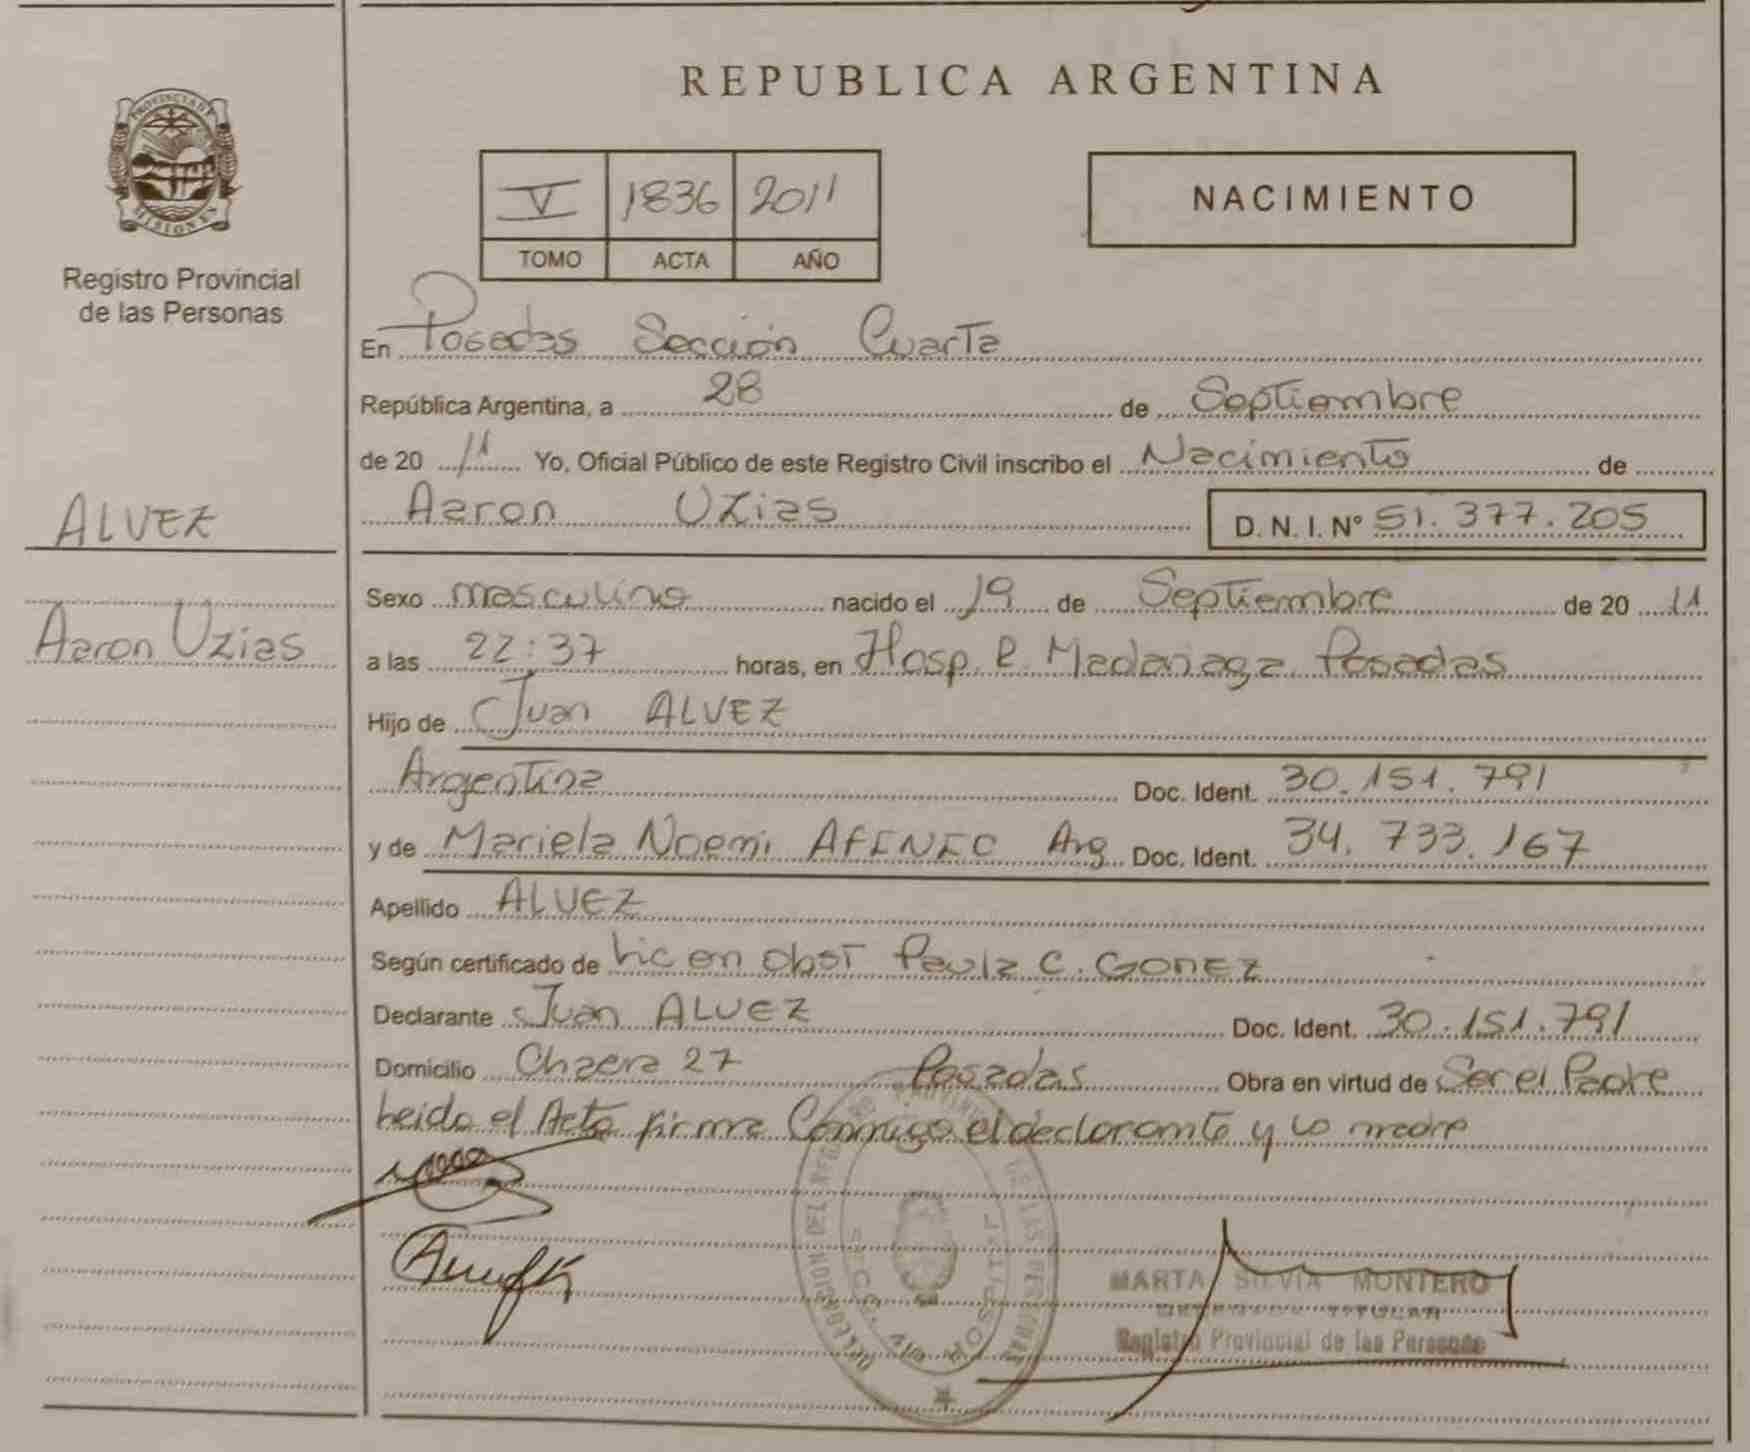 PROVINCIA DE
MISIONES
Registro Provincial
de las Personas
ALVEZ
Aaron Uzias
REPUBLICA ARGENTINA
V 1836 2011
TOMO ACTA AÑO
NACIMIENTO
En Posadas Sección Cuarta
República Argentina, a 28 de Septiembre
de 20 11 Yo, Oficial Público de este Registro Civil inscribo el Nacimiento de
Aaron Uzias D. N. I. Nº 51.377.205
Sexo masculino nacido el 19 de Septiembre de 20 11
a las 22:37 horas, en Hosp. R. Madariaga Posadas
Hijo de Juan ALVEZ
Argentina Doc. Ident. 30.151.791
y de Mariela Noemi Arg Doc. Ident. 34.733.167
Apellido ALVEZ
Según certificado de Lic en Obst Paula C. GOMEZ
Declarante Juan ALVEZ Doc. Ident. 30.151.791
Domicilio Chacra 27 Posadas Obra en virtud de Ser el Padre
Leida el Acta firma Conmigo el declarante y la madre
MARTA SILVIA MONTERO
TITULAR
Registro Provincial de las Personas